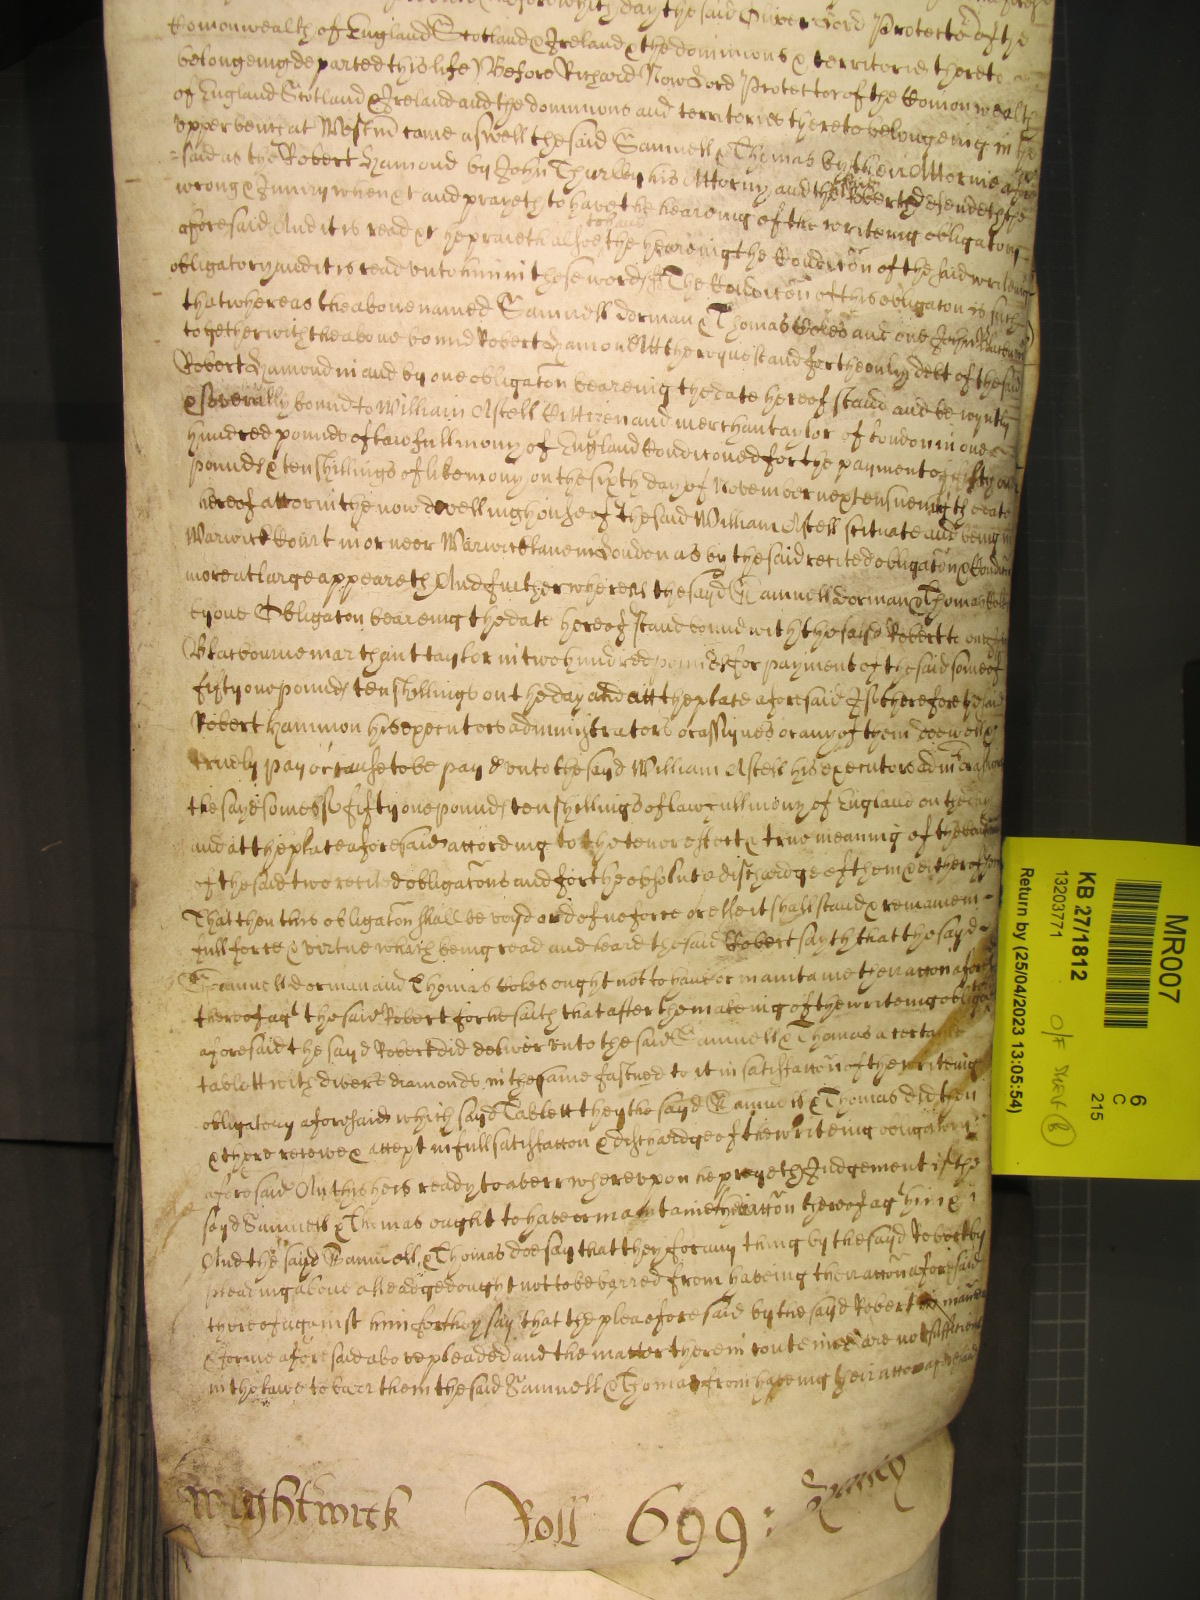 before which day the said Oliver Lord Protector of the
Comonwealth of England Scotland & Ireland & the dominions & territories thereto
belongeing departed this life) Before Richard Now Lord Protector of the Comonwealth
of England Scotland & Ireland and the dominions and territories thereto belongeing in the
upper bench at Westm̄ came aswell the said Samuell & Thomas by their Attornie afore
=said as the Robert Hamond by John Thurlby his Attorny and the said Robert defendeth the
wrong & Injury when &t and prayeth to have the heareing of the writeing obligatory
aforesaid And it is read &t he praieth alsoe to have the heareing the Condicōn of the said writeing
obligatory and it is read unto him in these words ss The Condicōn of this obligacon is such
that whereas the above named Samuell Dorman & Thomas Coles and one John
together with the above bound Robert Hamon Att the request and for the only debt of the said
Robert Hamond in and by one obligacōn beareing the date hereof stand and be joyntly
& severally bound to William Astell Cittizen and merchantaylor of London in one
hundred pounds of lawfull mony of England Condiconed for the payment of fifty one
pounds & ten shillings of like mony on the sixth day of November next ensueing the date
hereof att or in the now dwelling house of the said William Astell scituate and being in
Warwick Court in or neer Warwick lane in London as by the said recited obligacōn & Condicōn
more at large appeareth And further whereas the sayd Samuell Dorman & Thomas Coles
by one Obligacon beareing the date hereof stand bound with the said Robert to one
Blackbourne marchant taylor in two hundred pounds for payment of the said some of
fifty one pounds ten shillings on the day and att the place aforesaid If therefore the said
Robert Hammon his executors administrators or assignes or any of them doe well &
truely pay or cause to be payd unto the sayd William Astell his executors admin̄ or assignes
the sayd some of fifty one pounds ten shillings of lawfull mony of England on the day
and at the place aforesaid according to the tenor effect & true meaning of the
of the said two recited obligacōns and for the absolute dischardge of them & either of them
That then this obligacōn shall be voyd and of noe force or else it shall stand & remaine in
full force & virtue which being read and heard the said Robert sayth that the sayd
Samuell Dorman and Thomas Coles ought not to have or maintaine their accon aforesaid
thereof agt the said Robert for he saith that after the makeing of the writeing obligatory
aforesaid the sayd Robert did deliver unto the said Samuell & Thomas a certaine
tablett with divers diamonds in the same fastned to it in satisfaccōn of the writeing
obligatory aforesaid which sayd Tablett they the sayd Samuell & Thomas did then
& there receive & accept in full satisfaccon & dischardge of the writeing obligatory
aforesaid And this he is ready to averr whereupon he prayeth Judgement if the
sayd Samuell & Thomas ought to have or maintaine their accōn thereof agt him &t
And the sayd Samuell & Thomas doe say that they for any thing by the sayd Robert by
pleading above alleadged ought not to be barred from haveing their accōn aforesaid
thereof against him for they say that the plea aforesaid by the sayd Robert in manner
& forme aforesaid above pleaded and the matter therein conteined are not sufficient
in the lawe to barr them the said Samuell & Thomas from haveing their accon aforesaid
Wightwick Roll 699:
MR007
KB 27/1812
13203771
Return by (25/04/2023 13:05:54)
6
C
215